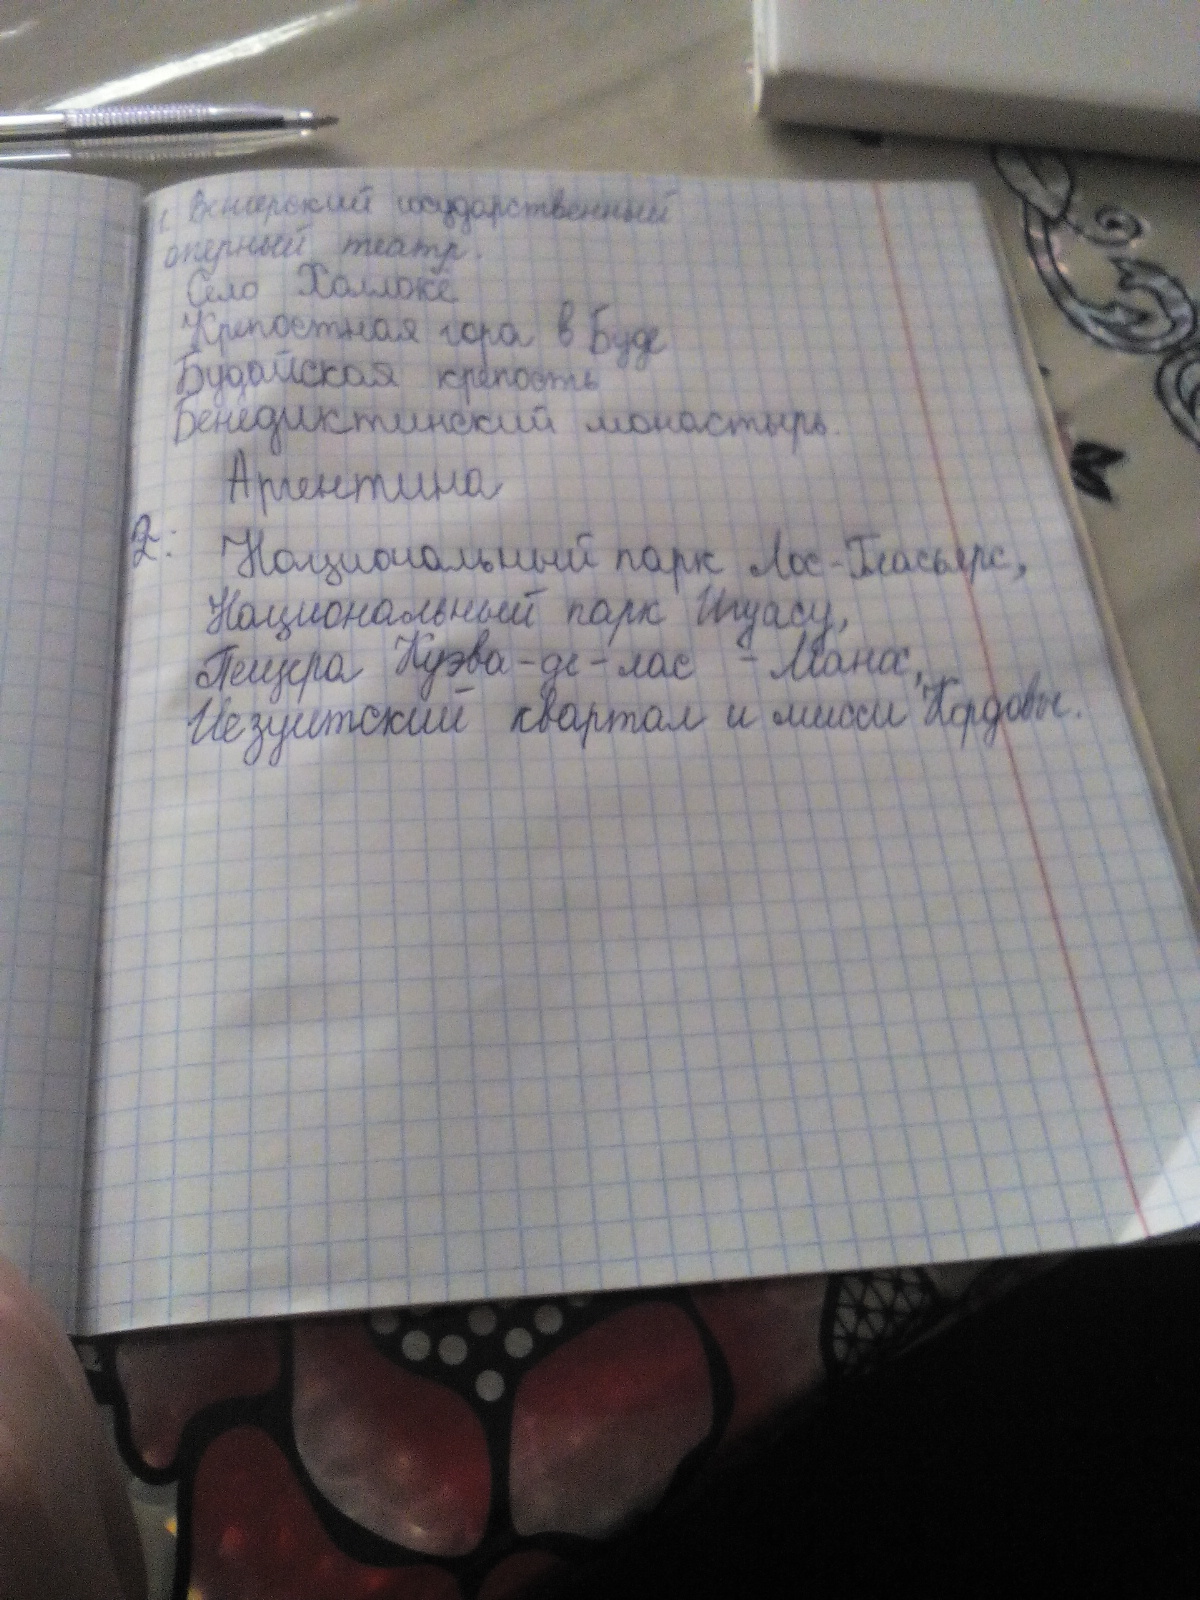 1. Венгерский государственный
оперный театр.
Село Холлоке
Крепостная гора в Буде
Будайская крепость
Бенедиктинский монастырь.
Аргентина
2: Национальный парк Лос-Гласьярс,
Национальный парк Игуасу,
Пещера Куэва-де-лас - Манос,
Иезуитский квартал и мисси Кордовы.